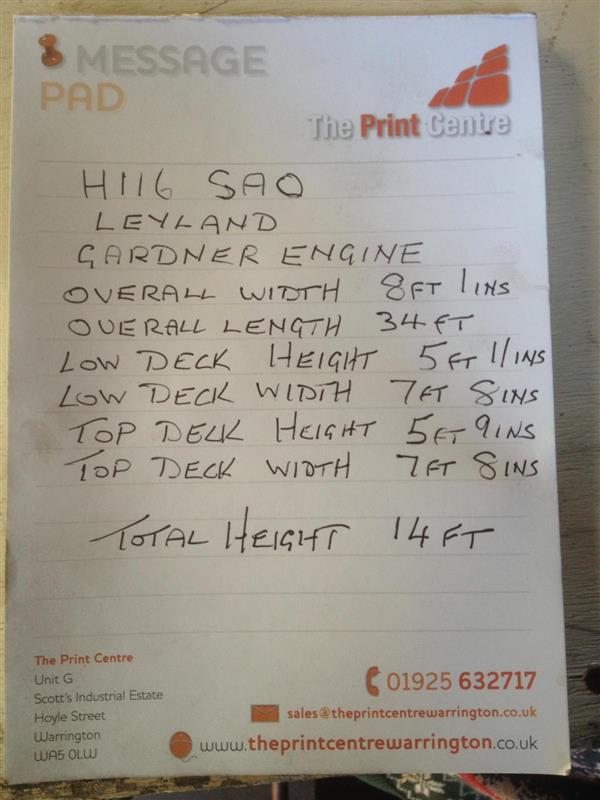 MESSAGE
PAD
The Print Centre
H116 SAO
LEYLAND
GARDNER ENGINE
OVERALL WIDTH 8FT 1INS
OVERALL LENGTH 34FT
LOW DECK HEIGHT 5FT 11INS
LOW DECK WIDTH 7FT 8INS
TOP DECK HEIGHT 5FT 9INS
TOP DECK WIDTH 7FT 8INS
TOTAL HEIGHT 14FT
The Print Centre
Unit G
Scott's Industrial Estate
Hoyle Street
Warrington
WA5 0LW
01925 632717
sales@theprintcentrewarrington.co.uk
www.theprintcentrewarrington.co.uk